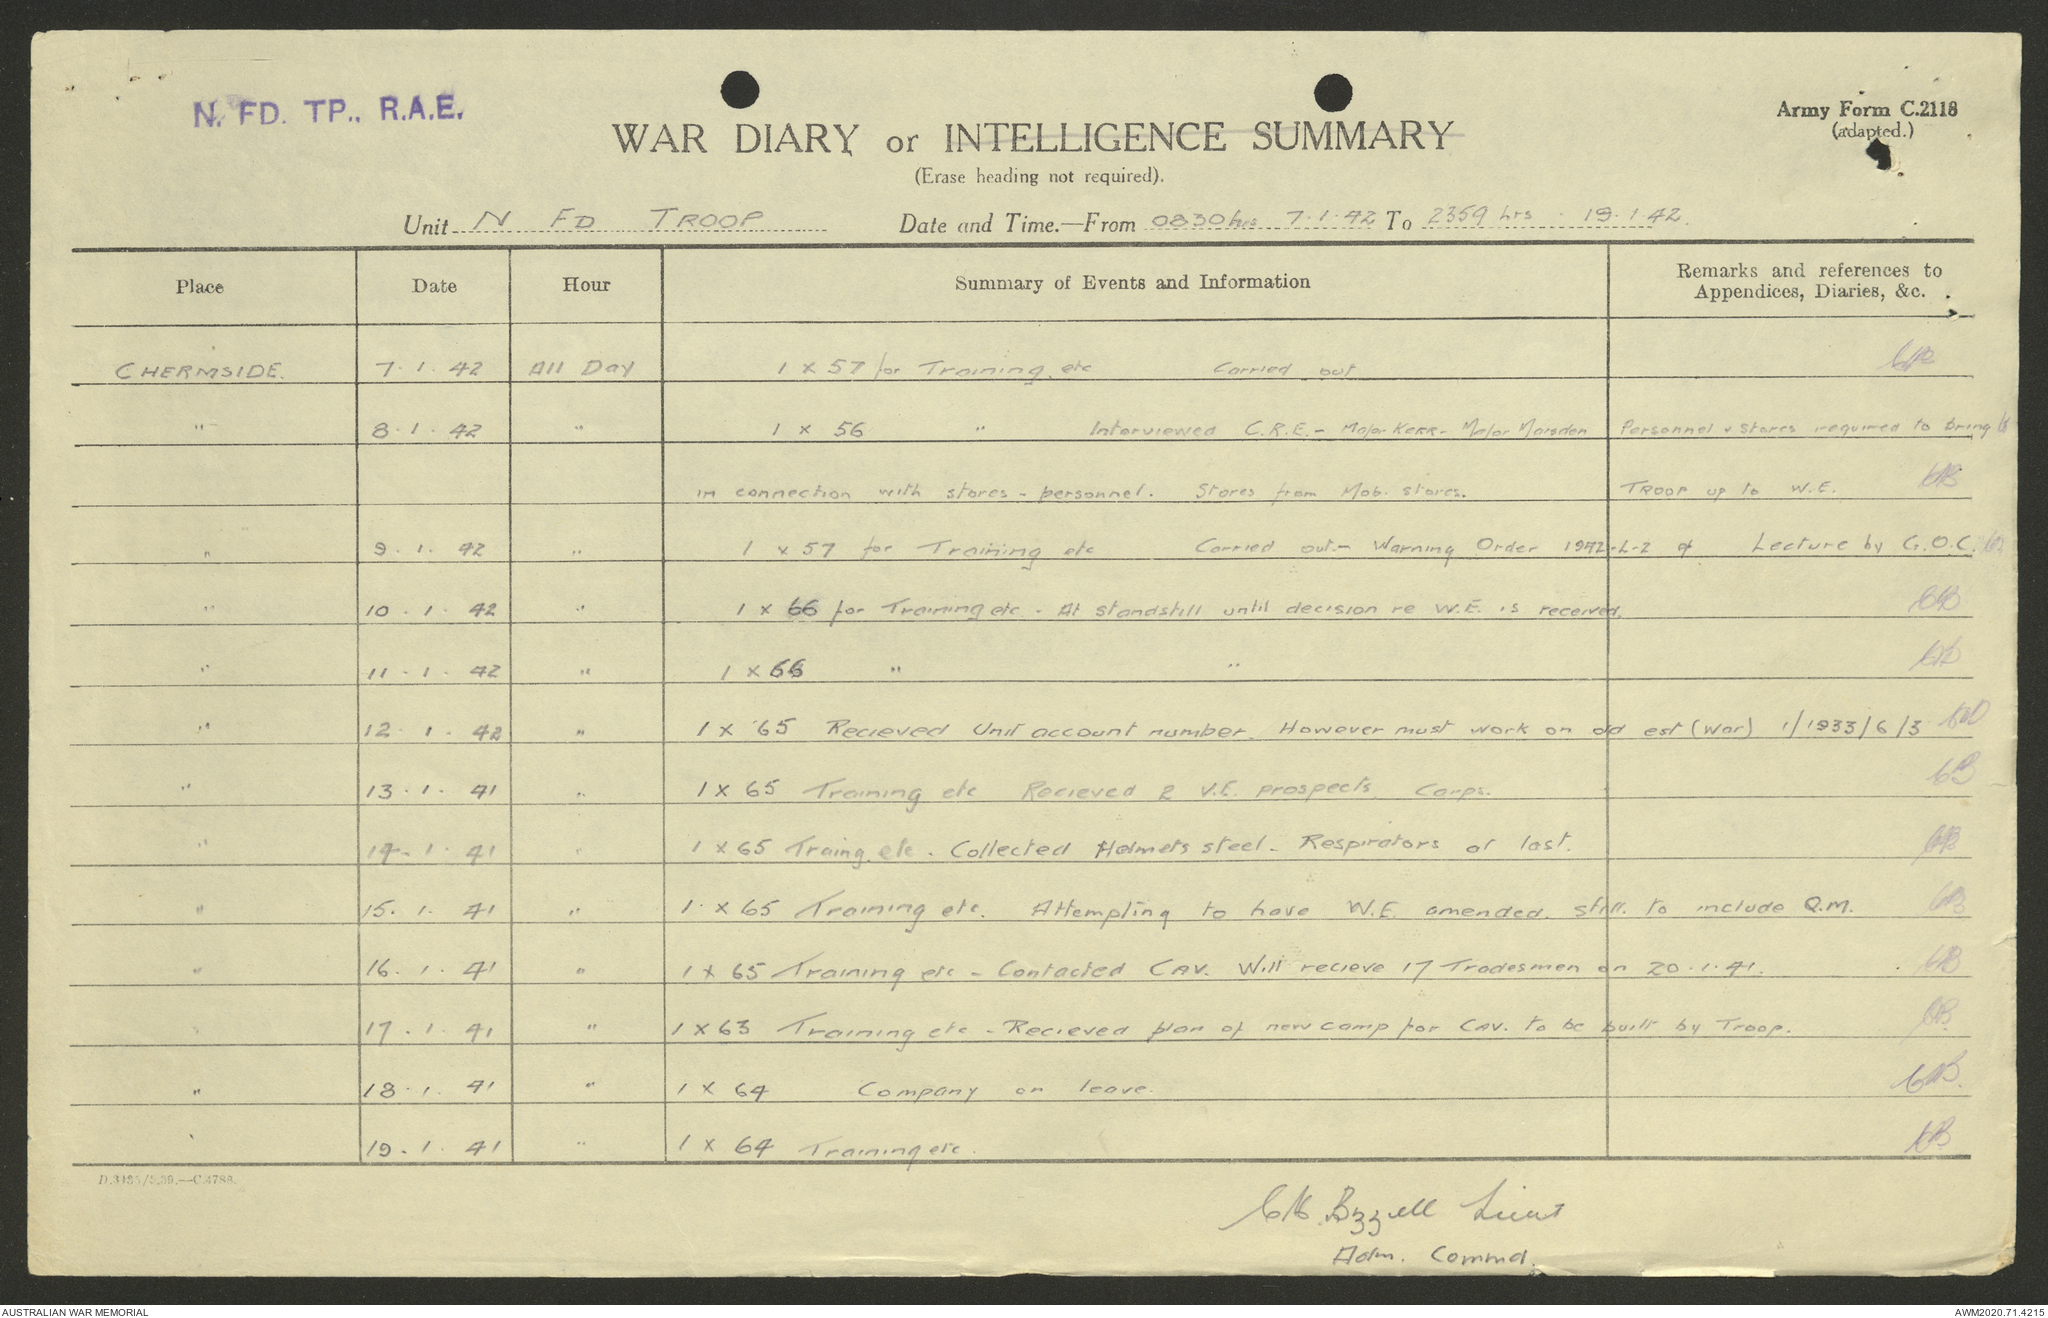 N. FD. TP., R.A.E.
Army Form C.2118
(adapted.)
WAR DIARY or INTELLIGENCE SUMMARY
(Erase heading not required).
Unit N FD TROOP Date and Time.—From 0830 hrs 7.1.42 To 2359 hrs 19.1.42.
Place Date Hour Summary of Events and Information Remarks and references to
Appendices, Diaries, &c.
CHERMSIDE. 7.1.42 All Day 1 x 57 for Training etc Carried out
" 8.1.42 " 1 x 56 " Interviewed C.R.E.- Major KERR- Major Marsden Personnel & stores required to bring
in connection with stores - personnel. Stores from Mob. stores. TROOP up to W.E.
" 9.1.42 " 1 x 57 for Training etc Carried out- Warning Order 1942-L-2 of Lecture by G.O.C.
" 10.1.42 " 1 x 66 for Training etc - At standstill until decision re W.E. is received.
" 11.1.42 " 1 x 66 " "
" 12.1.42 " 1 x 65 Recieved Unit account number. However must work on old est (War) 1/1933/6/3
" 13.1.41 " 1 x 65 Training etc Recieved 2 V.E. prospects. Corps.
" 14.1.41 " 1 x 65 Traing etc. Collected Helmets steel - Respirators at last.
" 15.1.41 " 1 x 65 Training etc. Attempting to have W.E. amended. still to include Q.M.
" 16.1.41 " 1 x 65 Training etc - Contacted CAV. Will recieve 17 Tradesmen on 20.1.41.
17.1.41 " 1 x 63 Training etc - Recieved plan of new camp for CAV. to be built by Troop.
" 18.1.41 " 1 x 64 Company on leave.
19.1.41 " 1 x 64 Training etc.
D.3435/5.39.—C.4788.
Bizzell Lieut
Adm. Commd.
AUSTRALIAN WAR MEMORIAL AWM2020.71.4215